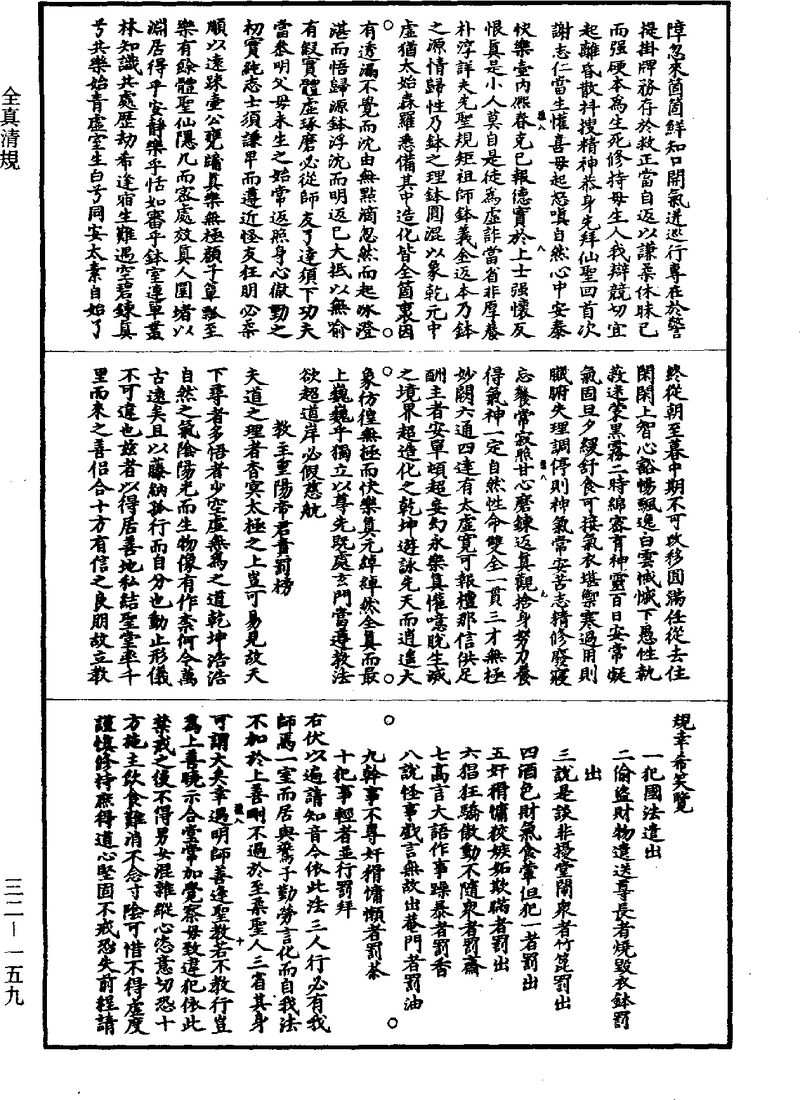 障忽來箇箇鮮知口開氣迸巡行專在於警
提掛牌務存於救正當自返以謙柔休昧已
而强硬本為生死修持毋生人我辯競切宜
起離昏散抖搜精神恭身先拜仙聖回首次
謝志仁當生懽喜毋起怒嗔自然心中安泰
快樂壺內熙春克己報德實於上士强懷反
恨真是小人莫自是徒為虛詐當省非厚養
朴淳詳夫先聖規矩祖師鉢義金返本乃鉢
之源情歸性乃鉢之理鉢圓混以象乾元中
虛猶太始森羅悉備其中造化皆全箇裏因
有透漏不覺而沈由無點滴忽然而起水澄
湛而悟歸源鉢浮沈而明返已大抵以無喻
有假實體虛琢磨必從師友了達須下功夫
當叅明父母未生之始常返照身心俶動之
初實純志士須謙早而遵近怪友狂朋必柔
順以遠踈壺公甕牖真樂無極顏子簞瓢至
樂有餘體聖仙隱几而客處效真人圍堵以
淵居得乎安靜樂乎恬如審乎鉢室連單叢
林知識共處歷劫希逢宿生難遇空碧鍊真
兮共樂始青虛室生白兮同安太素自始了
終從朝至暮中期不可改移圓滿任從去住
閑閑上智心豁暢飄逸白雲慽慽下愚性執
救迷蒙黑霧二時綿密育神靈百日安常凝
氣固旦夕緩舒食可接氣衣堪禦寒過用則
臟腑失理調停則神氣常安苦志精修廢寢
忘餐常寂照甘心磨鍊返真觀捨身努力養
得氣神一定自然性命雙全一貫三才無極
妙闢六通四達有太虛寬可報檀那信供足
酬主者安單頓超妄幻永樂真懽噫脫生滅
之境界超造化之乾坤遊詠先天而逍遙大
象彷徨無極而快樂真元綽綽然全真而最
上巍巍乎獨立以尊先既處玄門當遵教法
欲超道岸必假慈航
教主重陽帝君責罰榜
夫道之理者杳冥太極之上豈可易見故天
下尊者多悟者少空虛無為之道乾坤浩浩
自然之氣陰陽光而生物像有作柰何令萬
古遠矣且以藤納孤行而自分也動止形儀
不可違也茲者以得居善地私結聖堂率千
里而來之善侶合十方有信之良朋故立教
規幸希笑覽
一犯國法遣出
二偷盜財物遣送尊長者燒毀衣鉢罰
出
三說是談非擾堂鬧衆者竹篦罰出
四酒色財氣食葷但犯一者罰出
五奸猾慵狡嫉妬欺瞞者罰出
六猖狂驕傲動不隨衆者罰齋
七高言大語作事躁暴者罰香
八說怪事戲言無故出菴門者罰油
九幹事不專奸猾慵懶者罰茶
十犯事輕者並行罰拜
右伏以遍請知音今依此法三人行必有我
師焉一室而居與鷖子勤勞言化而自我法
不加於上善剛不過於至柔聖人三省其身
可謂大夫幸遇明師善達聖教若不教行豈
為上善曉示合堂常加覺察毋致違犯依此
禁戒之後不得男女混雜縱心恣意切恐十
方施主飲食難消不念寸陰可惜不得虛度
謹慎修持庶得道心堅固不戒恐失前程請
全真清規
三二—一五九